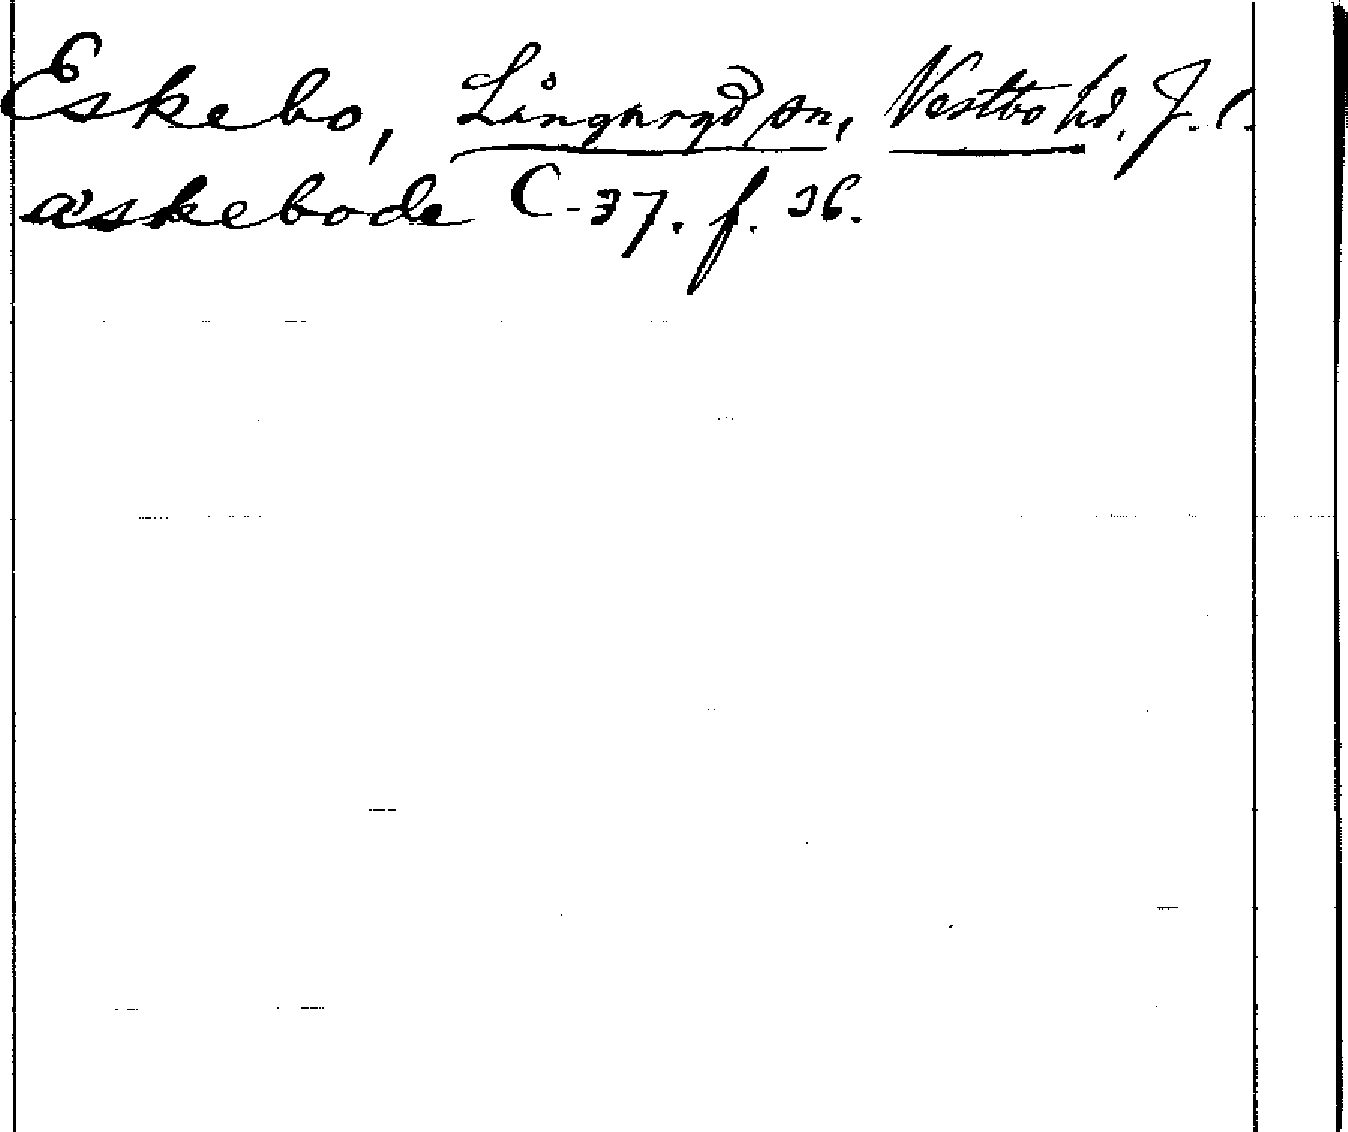 Eskebo, Långaryd sn, Vestbo hd, J. l.
äskebode C-37. f. 36.